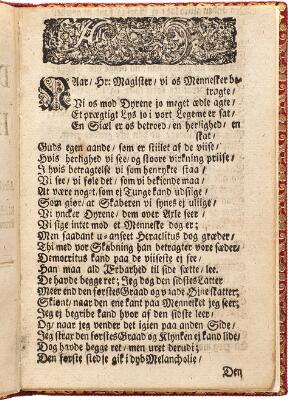 Naar/ Hr: Magister/ vi os Mennesker be-
tragte/
Vi os mod Dyrene jo meget ædle agte/
Et prægtigt Lys jo i vort Legeme er sat/
En Siæl er os betroed/ en herlighed/ en
skat/
Guds egen aande/ som er stillet af de viise/
Hvis herlighed vi see/ og stoore virkning priise/
I hvis betragtelse vi som henrykte staa/
Vi see/ vi føle det/ som vi bekiende maa/
At være noget/ som ej Tunge kand udsige/
Som giør/ at Skaberen vi synes ej ulige/
Vi ynker Dyrene/ dem over Axle seer/
Vi sige intet mod et Menneske dog er;
Men saadant u-anseet Heraclitus dog græder/
Thi med vor Skabning han betragter vore sæder/
Democritus kand paa de viiseste ej see/
Han maa ald Erbarhed til side sætte/ lee.
De havde begge ret; Jeg dog den sidstes Latter
Meer end den førstes Graad og vaade Øjne skatter;
Skiønt/ naar den ene kant paa Mennisket jeg seer;
Jeg ej begribe kand hvor af den sidste leer/
Og/ naar jeg vender det igien paa anden Side/
Jeg strax den førstes Graad og Klynken ej kand lide/
Dog havde begge ret/ men uret derudi;
Den første stedje gik i dyb Melancholie/
Den